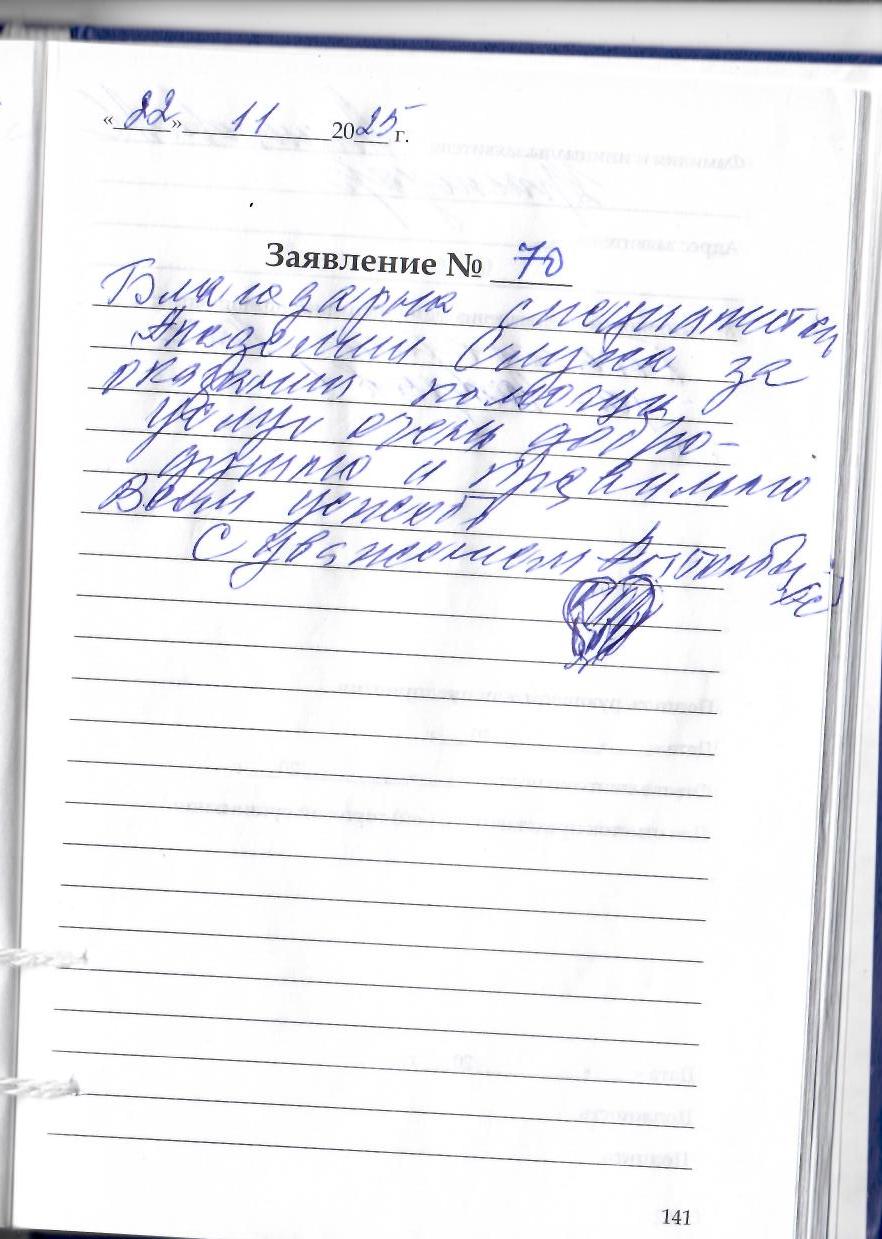 «22» 11 2025 г.
Заявление № 70
Благодарна специалистам
Академии Слуха за
оказании помощи
услуг очень добро-
душно и правильно
Всем успехов
С уважением
141